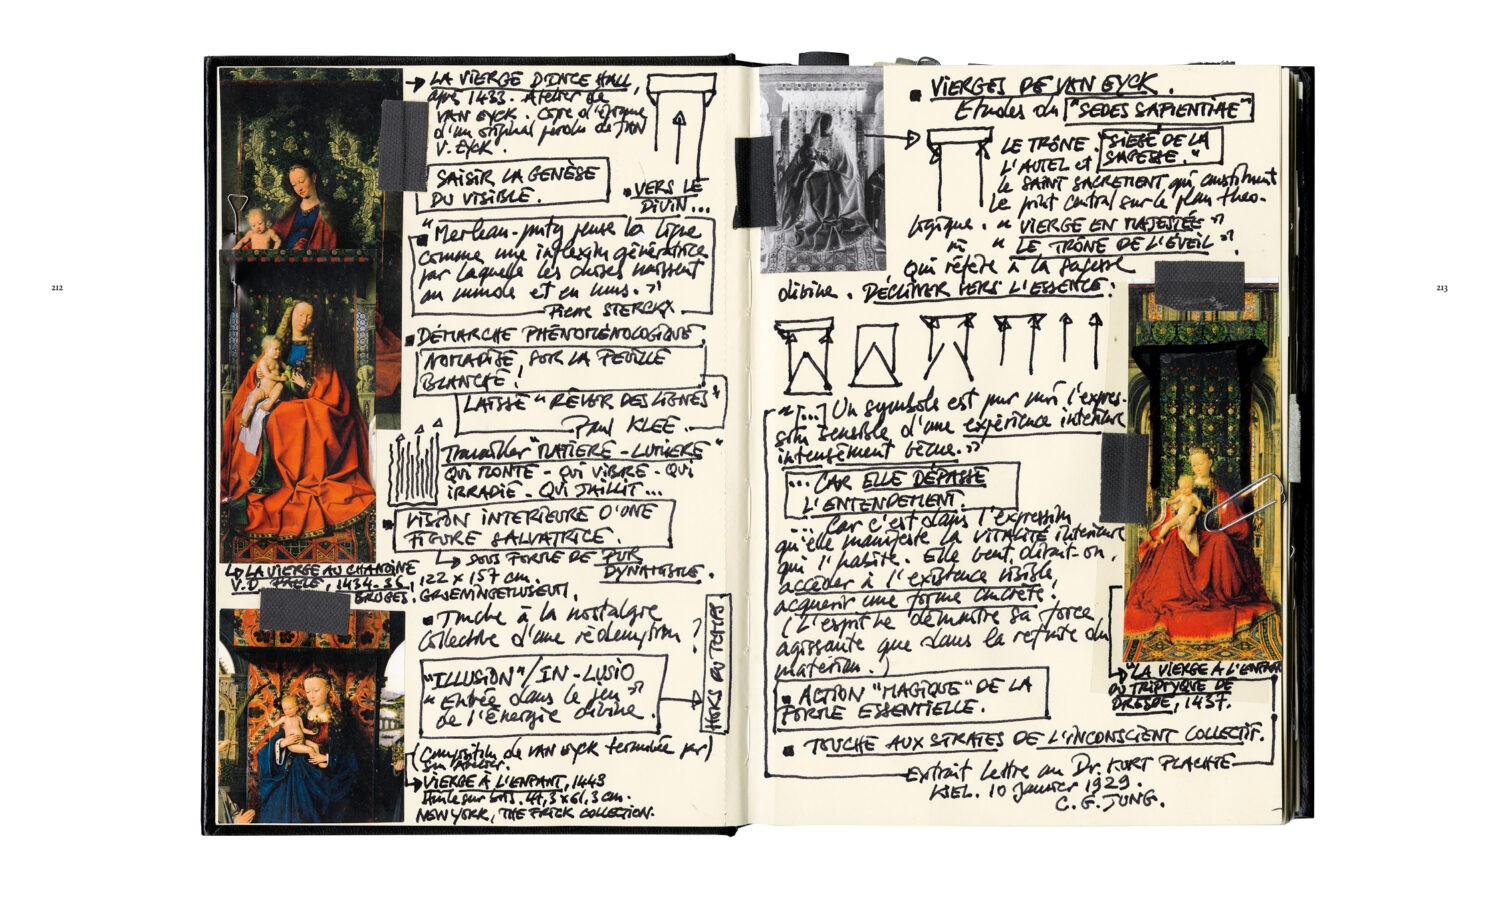 212
LA VIERGE D'INCE HALL,
après 1433. Atelier de
VAN EYCK. Copie d'époque
d'un original perdu de JAN
V. EYCK.
SAISIR LA GENÈSE
DU VISIBLE.
VERS LE
DIVIN...
"Merleau-Ponty pense la ligne
comme une inflexion génératrice
par laquelle les choses naissent
au monde et en nous."
STERCKX
DÉMARCHE PHÉNOMÉNOLOGIQUE,
NOMADISE, SUR LA FEUILLE
BLANCHE!
LAISSE "RÊVER DES LIGNES"
Paul KLEE
Travailler "MATIÈRE-LUMIÈRE"
QUI MONTE - QUI VIBRE - QUI
IRRADIE - QUI JAILLIT...
VISION INTERIEURE D'UNE
FIGURE SALVATRICE.
SOUS FORME DE PUR
DYNAMISME.
LA VIERGE AU CHANOINE
V.D. PAELE, 1434-36, 122 x 157 cm.
BRUGES. GROENINGEMUSEUM.
Touche à la nostalgie
collective d'une rédemption?
"ILLUSION"/IN-LUSIO
"Entrée dans le jeu"
de l'énergie divine.
HORS DU TEMPS
(Composition de VAN EYCK terminée par)
son atelier.
VIERGE À L'ENFANT, 1443
Huile sur bois. 47,3 x 61,3 cm.
NEW YORK, THE FRICK COLLECTION.
VIERGES DE VAN EYCK.
Etudes du "SEDES SAPIENTIAE"
LE TRÔNE. "SIEGE DE LA
L'AUTEL et SAGESSE."
le SAINT SACREMENT qui constituent
le point central sur le plan théo-
logique. "VIERGE EN MAJESTÉ"
"LE TRÔNE DE L'ÉVEIL"
qui réfère à la sagesse
divine. DÉCLINER VERS L'ESSENCE.
"[...] Un symbole est pour moi l'expres-
sion sensible d'une expérience intérieure
intensément vécue."
... CAR ELLE DÉPASSE
L'ENTENDEMENT.
... Car c'est dans l'expression
qu'elle manifeste la VITALITÉ intérieure
qui l'habite. Elle veut, dirait-on,
accéder à l'existence visible,
acquérir une forme concrète.
(L'esprit ne démontre sa force
agissante que dans la refonte du
matériau.)
ACTION "MAGIQUE" DE LA
FORME ESSENTIELLE.
TOUCHE AUX STRATES DE L'INCONSCIENT COLLECTIF.
Extrait Lettre au Dr. KURT PLACHTE
KIEL. 10 Janvier 1929.
C. G. JUNG.
"LA VIERGE A L'ENFANT
TRIPTYQUE DE
DRESDE, 1437.
213